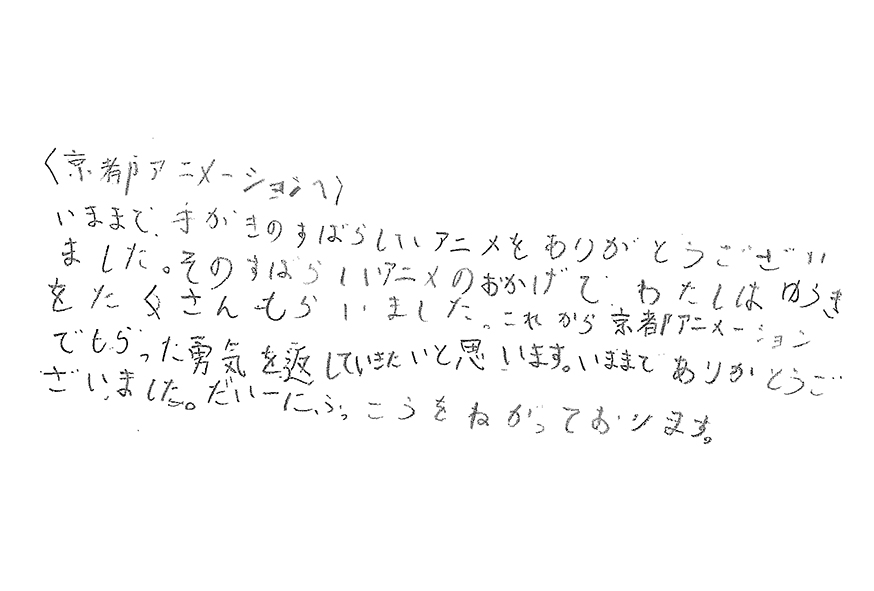 〈京都アニメーションへ〉
いままで、手がきのすばらしいアニメをありがとうござい
ました。そのすばらしいアニメのおかげで、わたしはゆうき
をたくさんもらいました。これから京都アニメーション
でもらった勇気を返していきたいと思います。いままでありがとうご
ざいました。だい一に、ふっこうをねがっております。